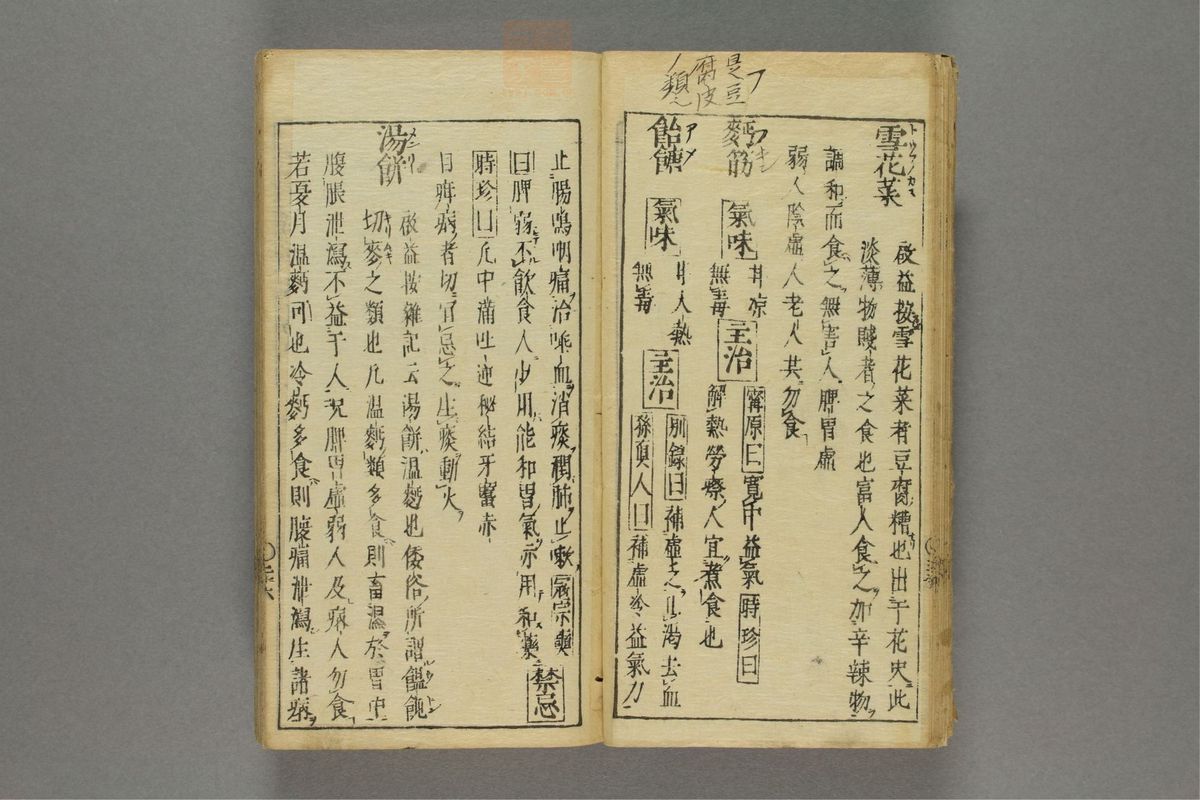 是豆
腐皮
ノ類
雪花菜
啟益按雪花菜者豆腐糟也出于花史此
淡薄物賤者之食也富人食之加辛辣物
調和而食之無害人脾胃虚
弱人陰虚人老人共勿食
麪筋 氣味 甘凉 無毒 主治 寗原曰寛中益氣時珍曰
解熱勞瘵人宜煮食也
飴餹 氣味 甘大熱 無毒 主治 別録曰補虚乏止渇去血
孫真人曰補虚冷益氣力
止腸鳴咽痛治唾血消痰潤肺止嗽冦宗奭
曰脾弱不飲食人少用能和胃氣亦用和藥 禁忌
時珍曰凡中滿吐逆秘結牙䘌赤
目疳病者切宜忌之生痰動火
湯餅
啟益按雜記云湯餅温麪也倭俗所謂饂飩
切麥之類也凡温麪類多食則畜温於胃中
腹脹泄瀉不益于人况脾胃虚弱人及病人勿食
若夏月温麪可也冷麪多食則腹痛泄瀉生諸病